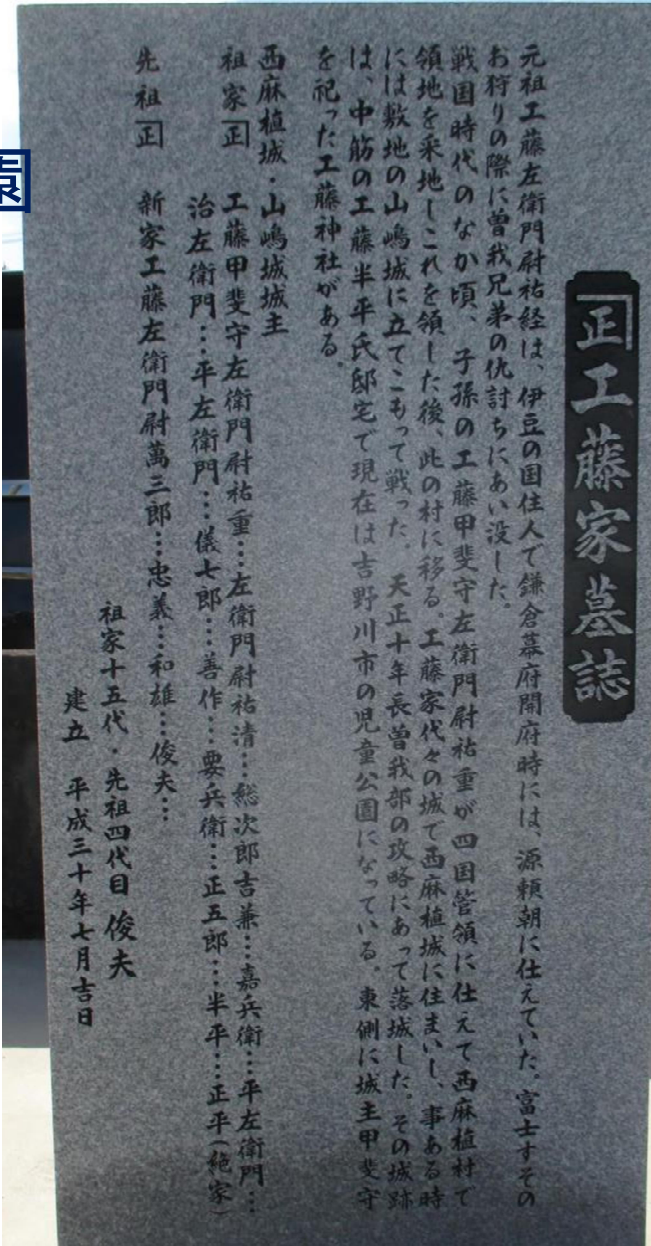 正工藤家墓誌
元祖工藤左衛門尉祐経は、伊豆の国住人で鎌倉幕府開府時には、源頼朝に仕えていた。富士すその
お狩りの際に曽我兄弟の仇討ちにあい没した。
戦国時代のなか頃、子孫の工藤甲斐守左衛門尉祐重が四国管領に仕えて西麻植村で
領地を采地しこれを領した後、此の村に移る。工藤家代々の城で西麻植城に住まいし、事ある時
には敷地の山嶋城に立てこもって戦った。天正十年長曽我部の攻略にあって落城した。その城跡
は、中筋の工藤半平氏邸宅で現在は吉野川市の児童公園になっている。東側に城主甲斐守
を祀った工藤神社がある。
西麻植城・山嶋城城主
祖家 正 工藤甲斐守左衛門尉祐重…左衛門尉祐清…総次郎吉兼…嘉兵衛…平左衛門…
治左衛門…平左衛門…儀七郎…善作…要兵衛…正五郎…半平…正平(絶家)
先祖 正 新家工藤左衛門尉萬三郎…忠義…和雄…俊夫…
祖家十五代・先祖四代目 俊夫
建立 平成三十年七月吉日
園